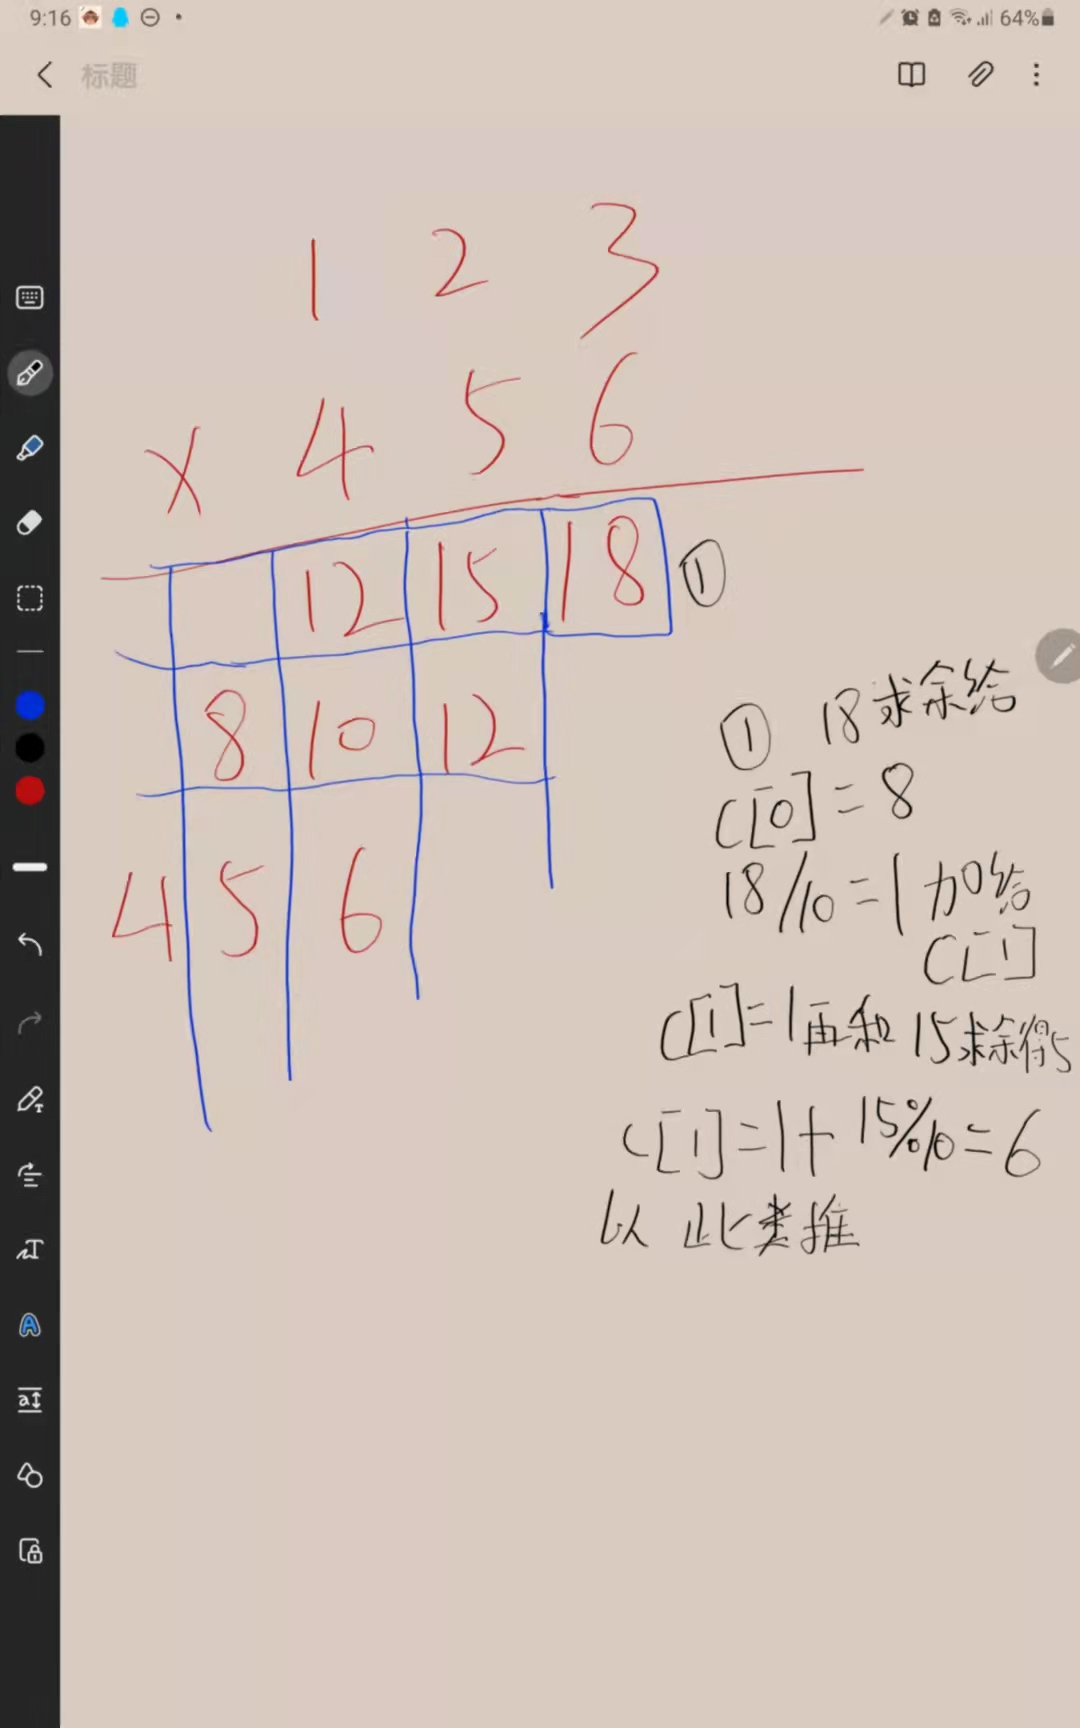 9:16
64%
标题
1 2 3
× 4 5 6
12 15 18 ①
8 10 12
4 5 6
① 18求余给
C[0]=8
18/10=1加给
C[1]
C[1]=1再和15求余得5
C[1]=1+15%10=6
以此类推